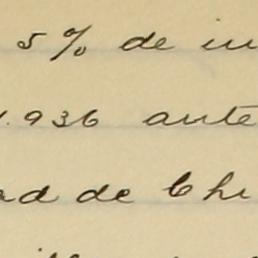 5% de in
1.936 ante
ad de Chi